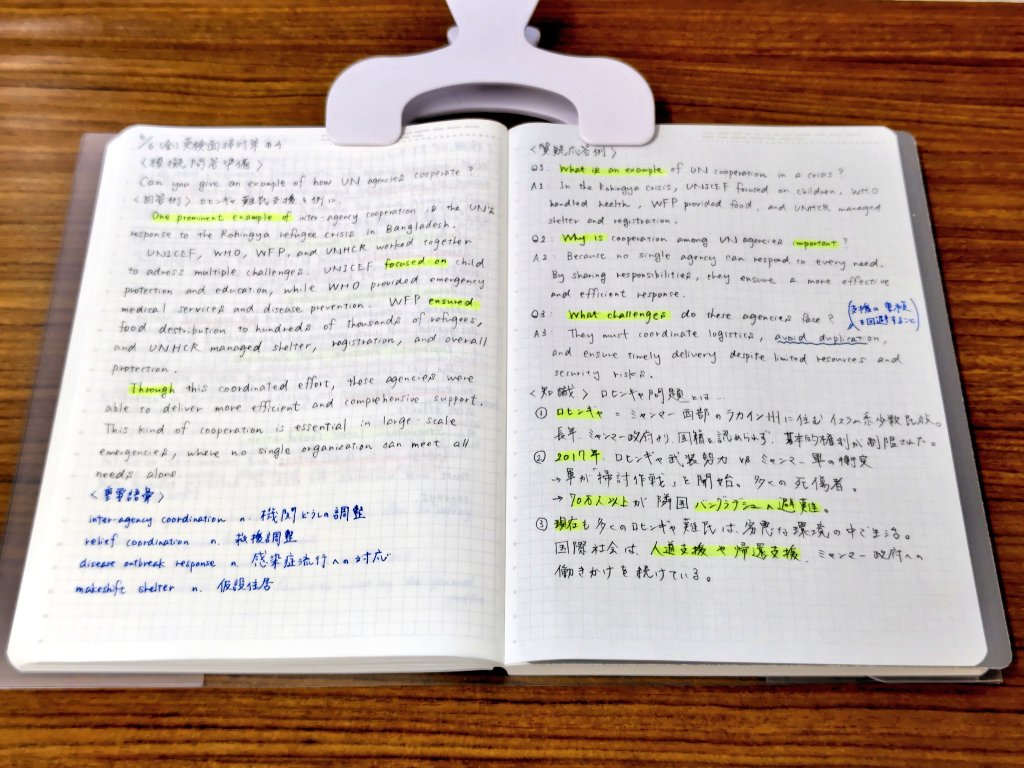 /6 (金) 英検面接対策 #4
〈模擬問答準備〉
Can you give an example of how UN agencies cooperate ?
〈回答例〉 ロヒンギャ難民支援を例に.
One prominent example of inter-agency cooperation is the UN's
response to the Rohingya refugee crisis in Bangladesh.
UNICEF, WHO, WFP, and UNHCR worked together
to adress multiple challenges. UNICEF focused on child
protection and education, while WHO provided emergency
medical services and disease prevention. WFP ensured
food destribution to hundreds of thousands of refugees,
and UNHCR managed shelter, registration, and overall
protection.
Through this coordinated effort, these agencies were
able to deliver more efficient and comprehensive support.
This kind of cooperation is essential in large-scale
emergencies, where no single organization can meet all
needs alone.
〈重要語彙〉
inter-agency coordination n. 機関どうしの調整
relief coordination n. 救援調整
disease outbreak response n. 感染症流行への対応
makeshift shelter n. 仮設住居
〈質疑応答例〉
Q1. What is an example of UN cooperation in a crisis ?
A1. In the Rohingya crisis, UNICEF focused on children, WHO
handled health, WFP provided food, and UNHCR managed
shelter and registration.
Q2. Why is cooperation among UN agencies important ?
A2. Because no single agency can respond to every need.
By sharing responsibilities, they ensure a more effective
and efficient response.
Q3. What challenges do these agencies face ?
(支援の重複
を回避すること)
A3. They must coordinate logistics, avoid duplication,
and ensure timely delivery despite limited resources and
security risks.
〈知識〉 ロヒンギャ問題とは...
① ロヒンギャ = ミャンマー西部のラカイン州に住むイスラム系少数民族。
長年、ミャンマー政府より国籍を認められず、基本的権利が制限された。
② 2017年、ロヒンギャ武装勢力 vs ミャンマー軍の衝突
→ 軍が「掃討作戦」を開始。多くの死傷者。
→ 70万人以上が隣国バングラデシュへ避難。
③ 現在も多くのロヒンギャ難民は、劣悪な環境の中で生活。
国際社会は、人道支援や帰還支援、ミャンマー政府への
働きかけを続けている。